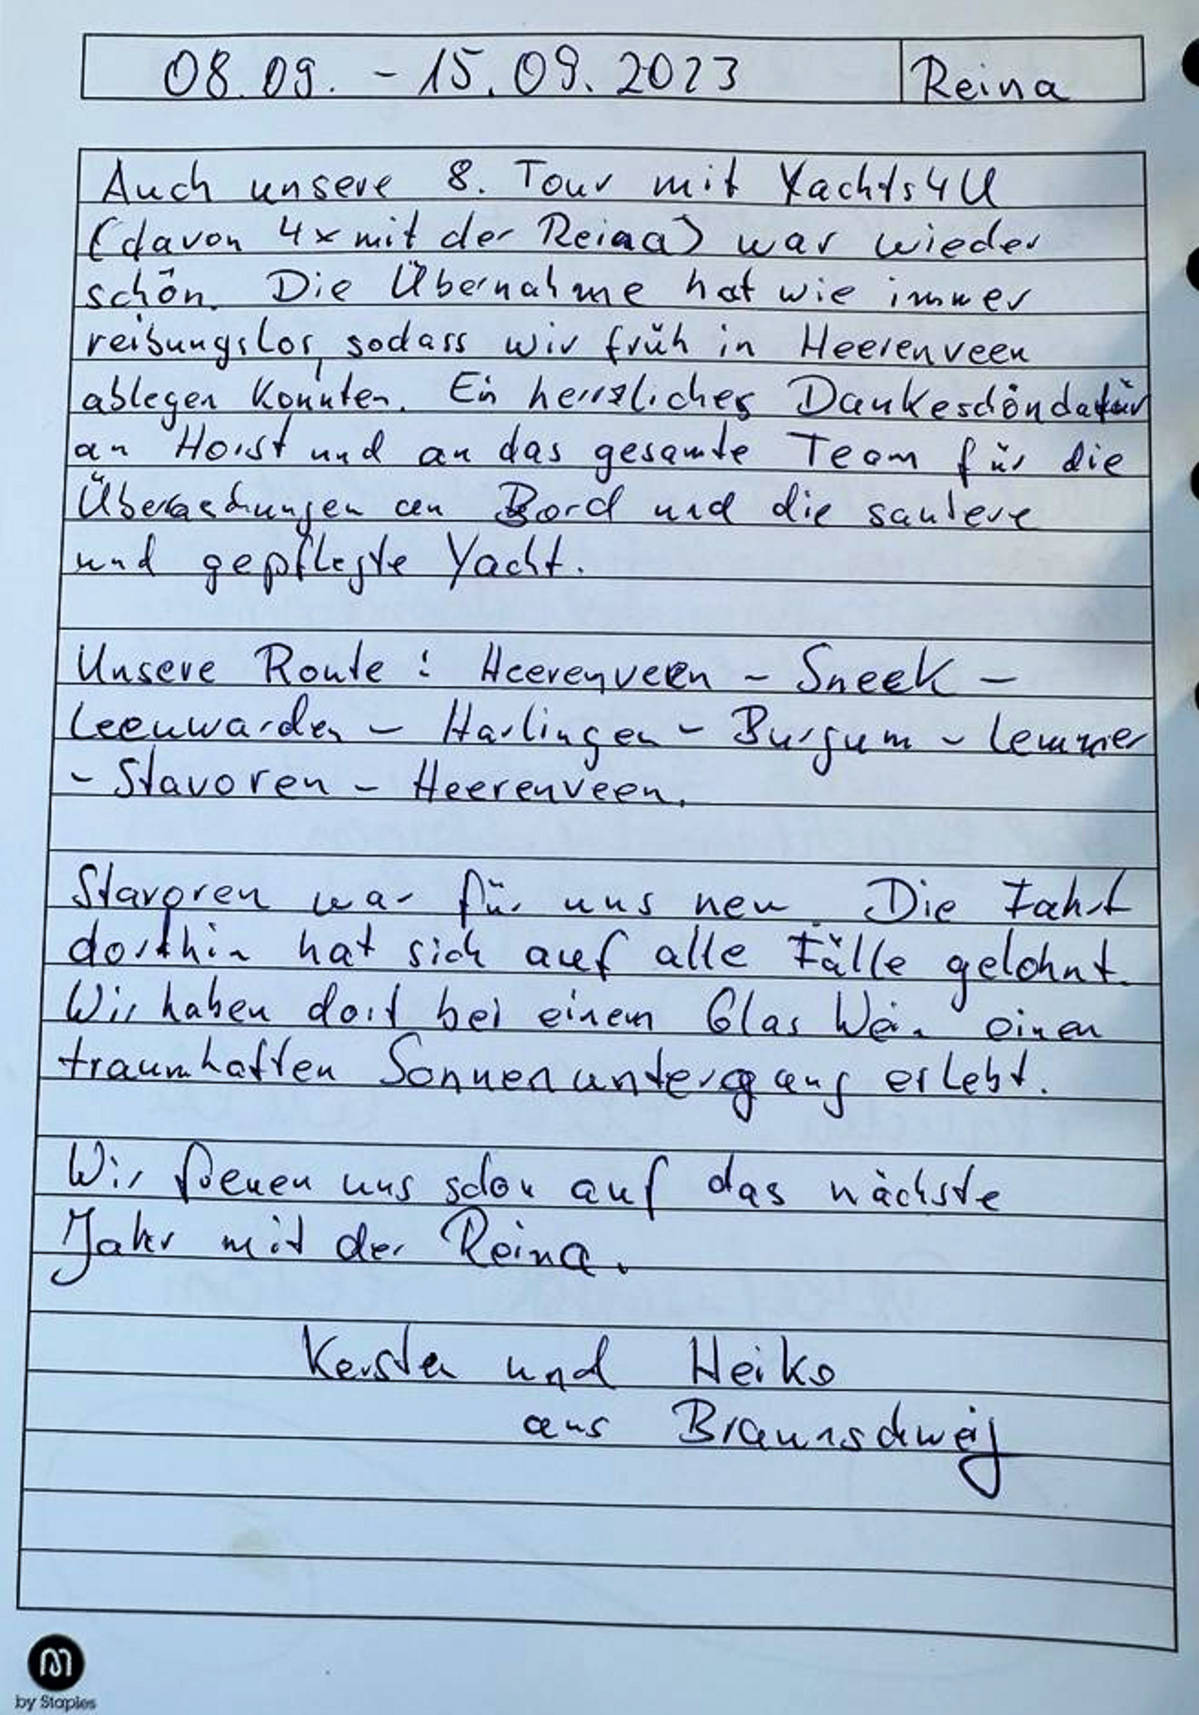 08.09. - 15.09.2023 Reina
Auch unsere 8. Tour mit Yachts4U
(davon 4x mit der Reina) war wieder
schön. Die Übernahme hat wie immer
reibungslos, sodass wir früh in Heerenveen
ablegen konnten. Ein herzliches Dankeschön dafür
an Horst und an das gesamte Team für die
Überraschungen an Bord und die saubere
und gepflegte Yacht.
Unsere Route: Heerenveen - Sneek -
Leeuwarden - Harlingen - Burgum - Lemmer
- Stavoren - Heerenveen.
Stavoren war für uns neu. Die Fahrt
dorthin hat sich auf alle Fälle gelohnt.
Wir haben dort bei einem Glas Wein einen
traumhaften Sonnenuntergang erlebt.
Wir freuen uns schon auf das nächste
Jahr mit der Reina.
und Heiko
aus Braunschweig
by Staples